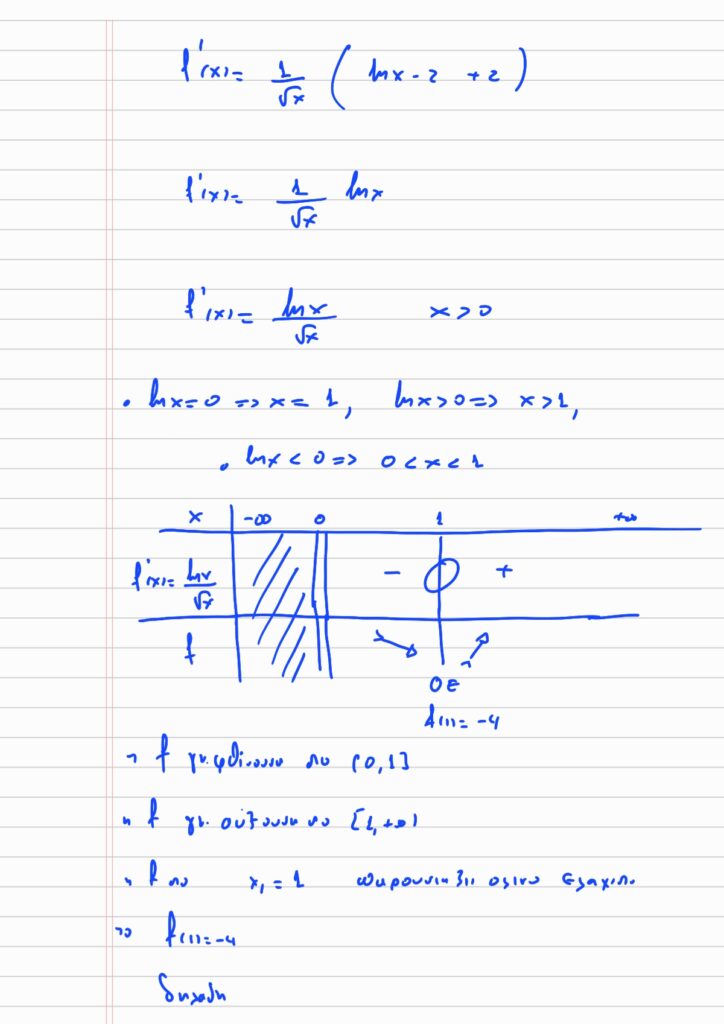 f'(x) = 1/√x ( lnx - 2 + 2 )
f'(x) = 1/√x lnx
f'(x) = lnx/√x x > 0
• lnx = 0 => x = 1, lnx > 0 => x > 1,
• lnx < 0 => 0 < x < 1
x -∞ 0 1 +∞
f'(x) = lnx/√x - 0 +
f ↘ ↗
ΟΕ
f(1) = -4
f γν. φθίνουσα στο (0,1]
f γν. αύξουσα στο [1,+∞)
f στο x₁ = 1 παρουσιάζει ολικό ελάχιστο
το f(1) = -4
δηλαδή